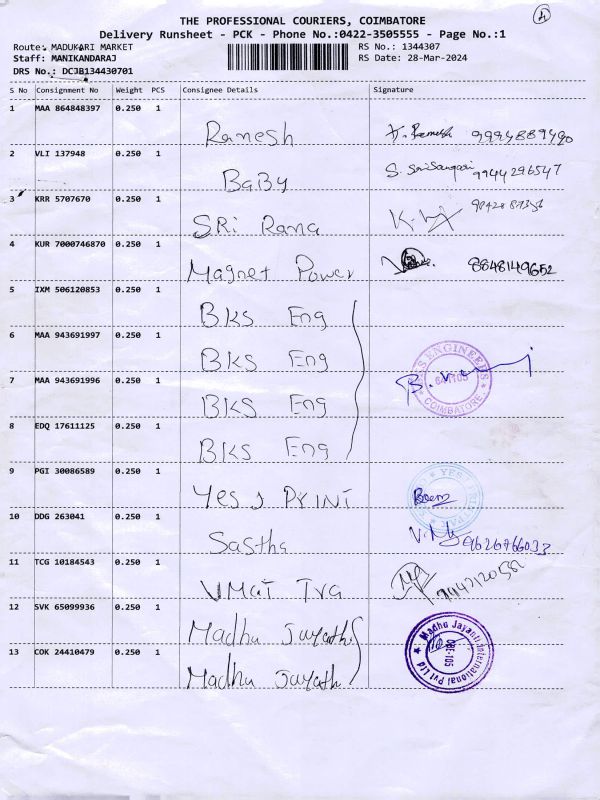 4
THE PROFESSIONAL COURIERS, COIMBATORE
Delivery Runsheet - PCK - Phone No.:0422-3505555 - Page No.:1
Route: MADUKARI MARKET RS No.: 1344307
Staff: MANIKANDARAJ RS Date: 28-Mar-2024
DRS No.: DCJB134430701
S No Consignment No Weight PCS Consignee Details Signature
1 MAA 864848397 0.250 1
Ramesh 9994889490
2 VLI 137948 0.250 1
BaBy S. 9944296547
3 KRR 5707670 0.250 1
SRi Rama
4 KUR 7000746870 0.250 1
Magnet Power 8848149652
5 IXM 506120853 0.250 1
BKS Eng
6 MAA 943691997 0.250 1
BKS Eng
7 MAA 943691996 0.250 1
BKS Eng ENGINEERS COIMBATORE
8 EDQ 17611125 0.250 1
BKS Eng
9 PGI 30086589 0.250 1
Yes J PRINT
10 DDG 263041 0.250 1
Sastha 9626766033
11 TCG 10184543 0.250 1
12 SVK 65099936 0.250 1
Madhu Jayathi
13 COK 24410479 0.250 1
Madhu Jayathi Madhu Jayanti International Pvt Ltd